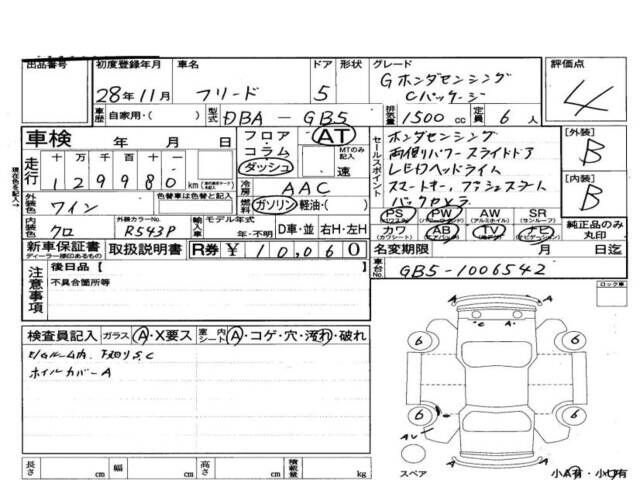 出品番号
初度登録年月
28年11月
車名
フリード
ドア
5
形状
グレード
Gホンダセンシング
Cパッケージ
評価点
4
車歴
自家用・( )
型式
DBA-GB5
排気量
1500cc
定員
6人
車検
年 月 日
フロア・コラム
AT
ダッシュ
MTのみ記入
速
セールスポイント
ホンダセンシング
両側パワースライドドア
LEDヘッドライム
スマートキー,プッシュスタート
バックカメラ
[外装]
B
[内装]
B
走行
十 万 千 百 十
129980
km
冷房
AAC
燃料
ガソリン・軽油・( )
外装色
ワイン
色替車は色替前の色
内装色
クロ
外装カラーNo.
R543P
輸入車
モデル年式
年・不明
D車・並
右H・左H
PS
PW
AW
(アルミホイル)
SR
(サンルーフ)
カワ
(カワシート)
AB
(エアバック)
TV
ナビ
(ナビゲーション)
純正品のみ丸印
新車保証書
ディーラー捺印あるもの
取扱説明書
R券
¥10,060
名変期限
月
日迄
車台No.
GB5-1006542
注意事項
後日品[
不具合箇所等
ロック車
検査員記入
ガラス
A・X要ス
室内
シート
A・コゲ・穴・汚れ・破れ
ホイルカバーA
A
A
C
A
6
6
6
6
AU
A
スペア
小A有・小U有
長さ
cm
幅
cm
高さ
cm
積載量
kg
現在色を記入→